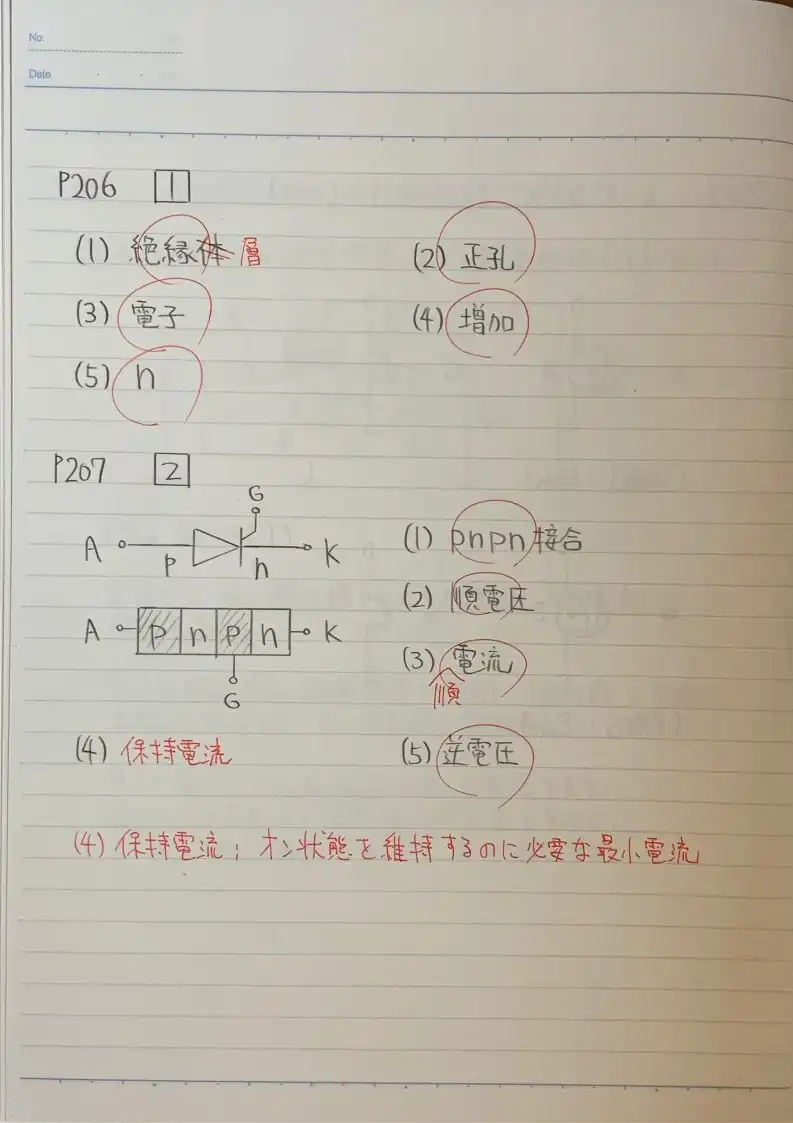 No.
Date
P206 1
(1) 絶縁体 層 (2) 正孔
(3) 電子 (4) 増加
(5) n
P207 2
G
A P n K
(1) pnpn接合
(2) 順電圧
A p n p n K
(3) 電流
順
G
(4) 保持電流 (5) 逆電圧
(4) 保持電流; オン状態を維持するのに必要な最小電流